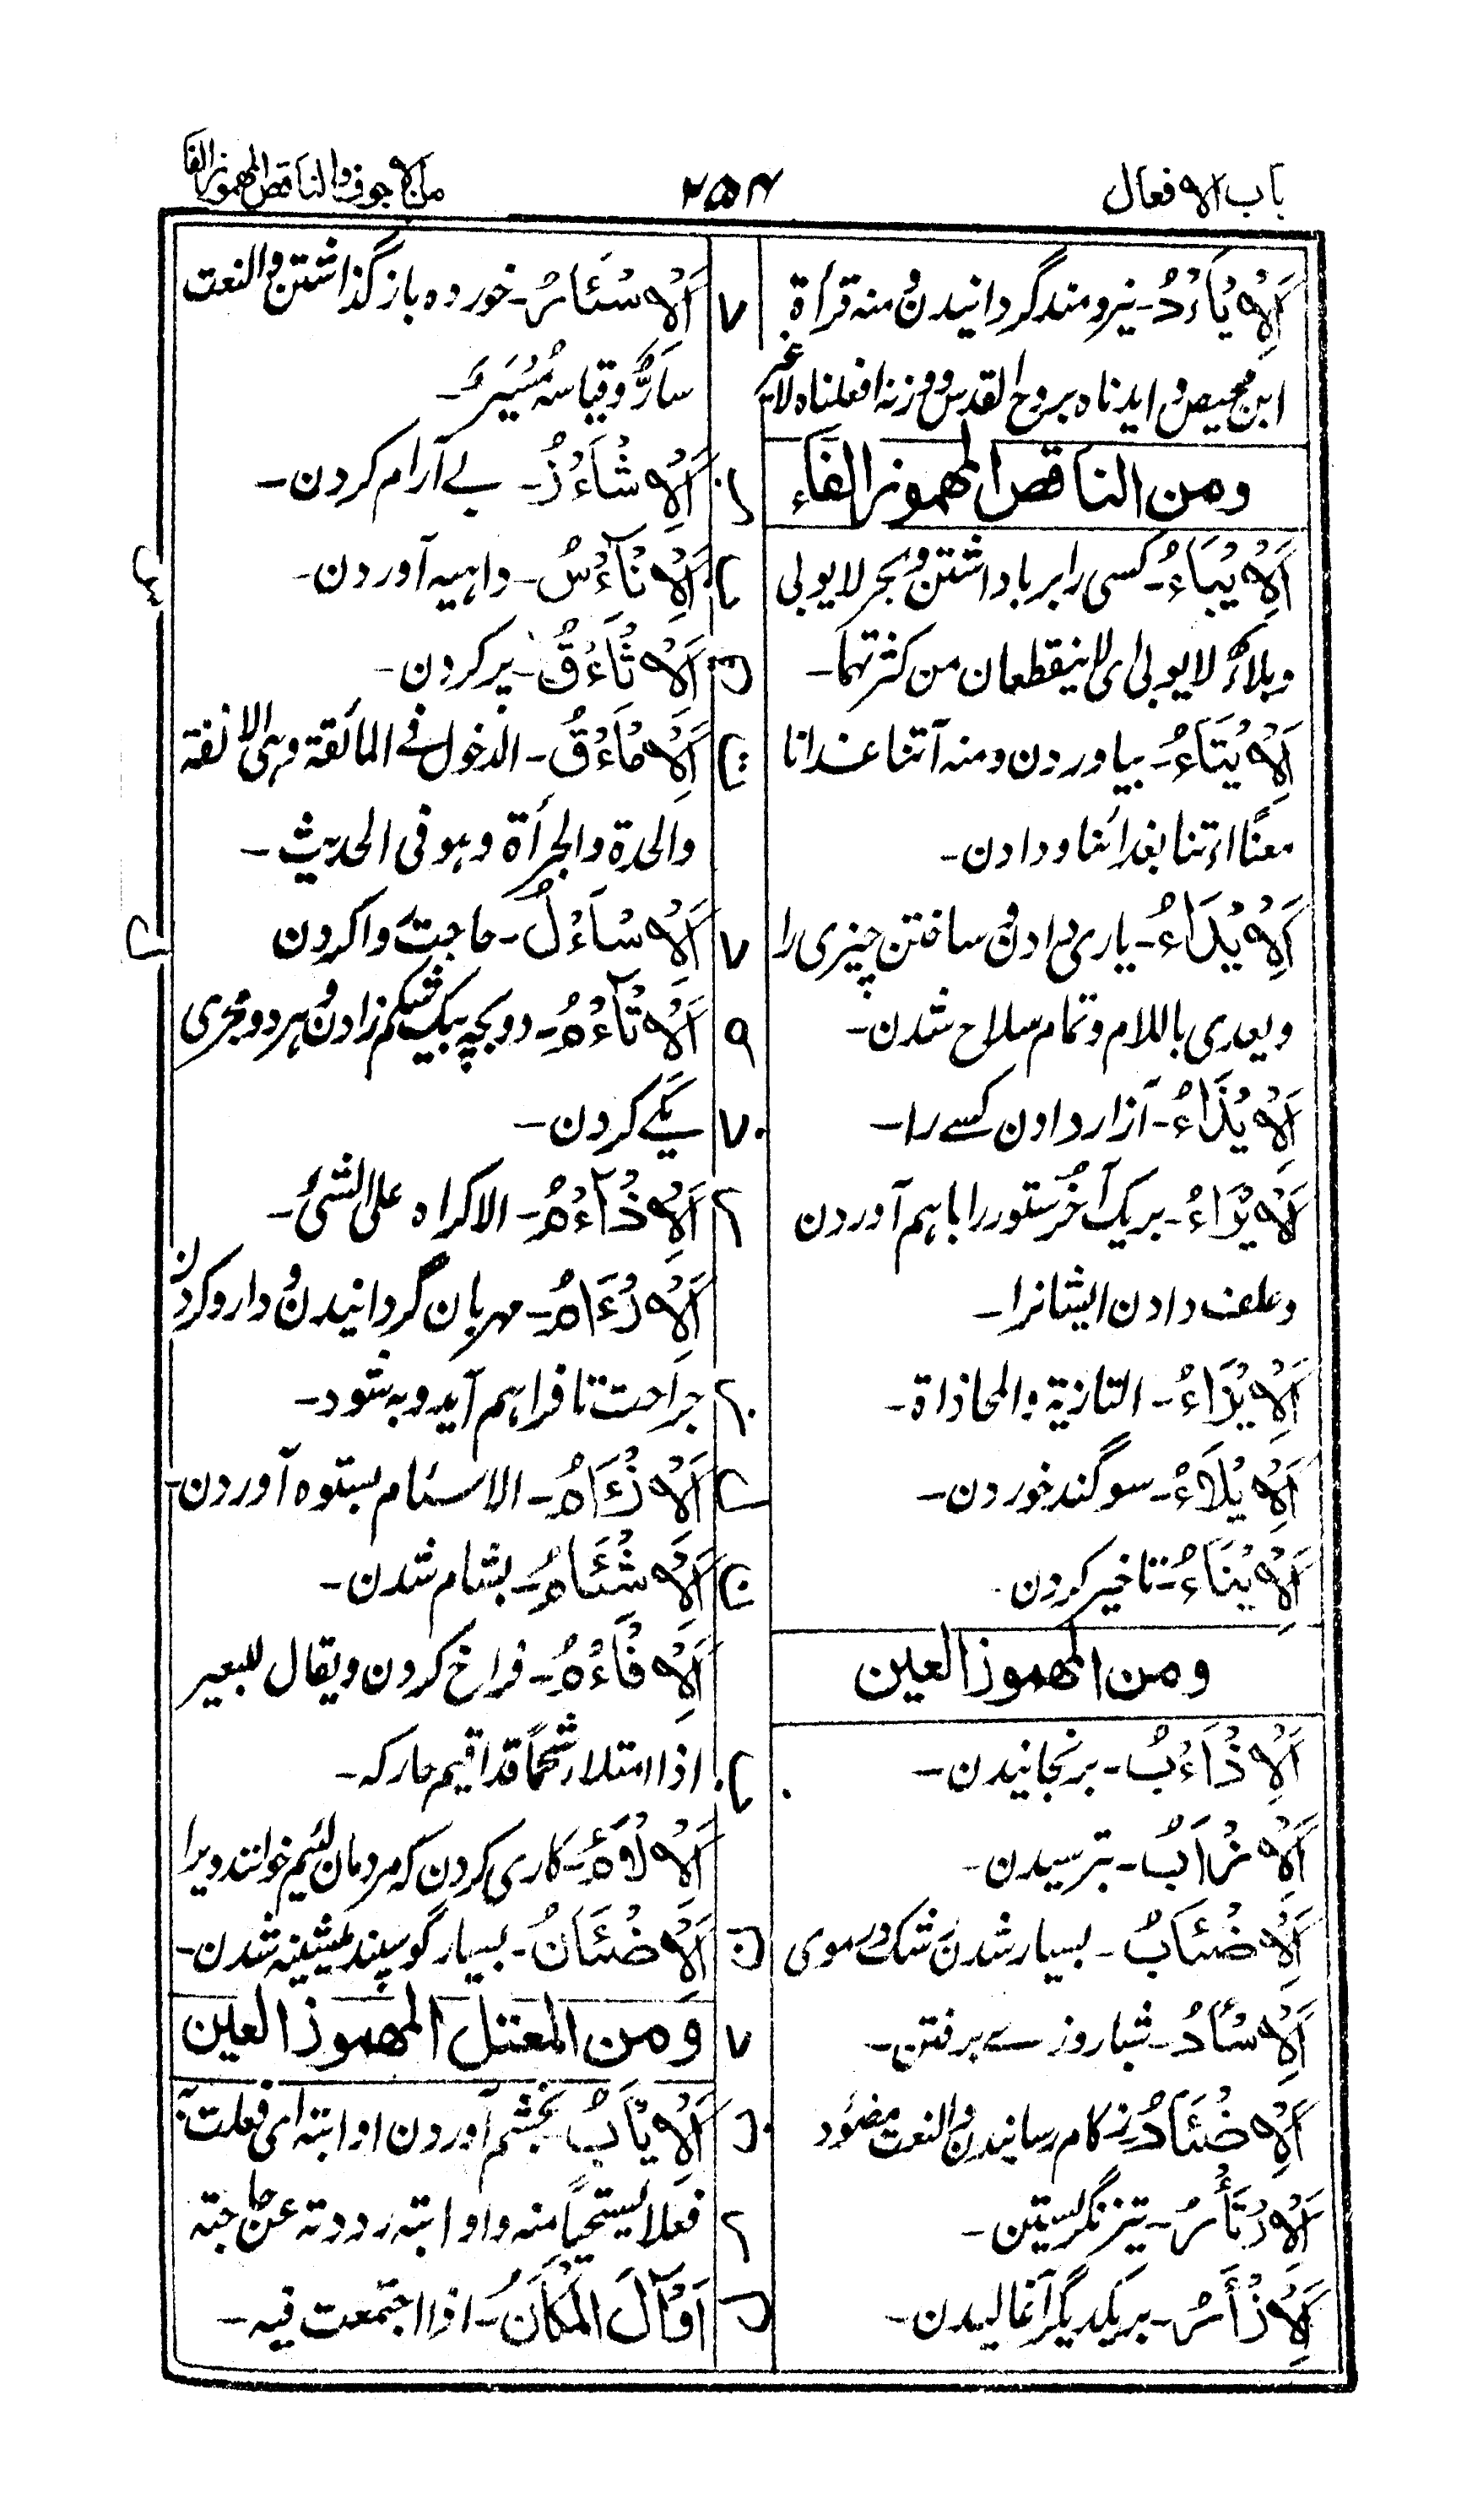 باب الافعال
۲۵۴
من الاجوف والناقص المهموز الفا
اَلْاِیْاَدُ۔ نیرومند گردانیدن و منه قرأة
ابن محیصن و ایدناه بروح القدس ووزنه افعلناه لا غیر
ومن الناقص المهموز الفاء
اَلْاِیْبَاءُ۔ کسی را بر با داشتن و بحر لا یوبی
وبلاءٌ لا یوبی ای لا ینقطعان من کثرتهما۔
اَلْاِیْتَاءُ۔ بیاوردن و منه آتنا غدانا
معناً ائتنا بغدائنا و دادن۔
اَلْاِیْدَاءُ۔ یاری دادن و ساختن چیزی را
و یعدی باللام و تمام سلاح شدن۔
اَلْاِیْذَاءُ۔ آزار دادن کسے را۔
اَلْاِیْرَاءُ۔ بر یک آخر ستور را باهم آوردن
و علف دادن ایشانرا۔
اَلْاِیْزَاءُ۔ التازیة والمحاذاة۔
اَلْاِیْلَاءُ۔ سوگند خوردن۔
اَلْاِیْنَاءُ۔ تاخیر کردن۔
ومن المهموز العین
اَلْاِذْاَءُبُ۔ برنجانیدن۔
اَلْاِزْاَبُ۔ بترسیدن۔
اَلْاِضْئَابُ۔ بسیار شدن شک در موی
اَلْاِسْاٰدُ۔ شباروزے برفتن۔
اَلْاِضْئَادُ۔ زکام رسانیدن والنعت مضئود
اَلْاِتْأَرُ۔ تیز نگریستن۔
اَلْاِذْأَرُ۔ بریکدیگر آغالیدن۔
اَلْاِسْئَارُ۔ خورده باز گذاشتن والنعت
سأرٌ و قیاسه مُسْیَرٌ۔
اَلْاِشْاَءُزُ۔ بے آرام کردن۔
اَلْاِنْآءُسُ۔ داهیه آوردن۔
اَلْاِثْاَءُقُ۔ پر کردن۔
اَلْاِمْاَءُقُ۔ الدخول فی المأقة وهی الانفة
والحدة والجرأة وهو فی الحدیث۔
اَلْاِسْاَءُلُ۔ حاجت روا کردن
اَلْاِتْآءُمُ۔ دو بچه بیک شکم زادن و هر دو مجری
یکے کردن۔
اَلْاِذْآءُمُ۔ الاکراه علی الشیء۔
اَلْاِرْءَامُ۔ مهربان گردانیدن و دارو کردن
جراحت تا فراهم آید و به شود۔
اَلْاِزْءَامُ۔ الاسئام بستوه آوردن۔
اَلْاِشْئَامُ۔ بشام شدن۔
اَلْاِفْاَءُمُ۔ فراخ کردن و یقال للبعیر
اذا امتلأ شحماً قد افیم حارکه۔
اَلْاِلْاٰمُ۔ کاری کردن که مردمان لئیم خوانند ویرا
اَلْاِضْئَانُ۔ بسیار گوسپند میشینه شدن۔
ومن المعتل المهموز العین
اَلْاِیْاَبُ۔ بخشم آوردن او ابته ای فعلت به
فعلا یستحیا منه و اوابته رددته عن حاجته
اَوْاٰلَ الْمَکَانُ۔ اذا اجتمعت فیه۔